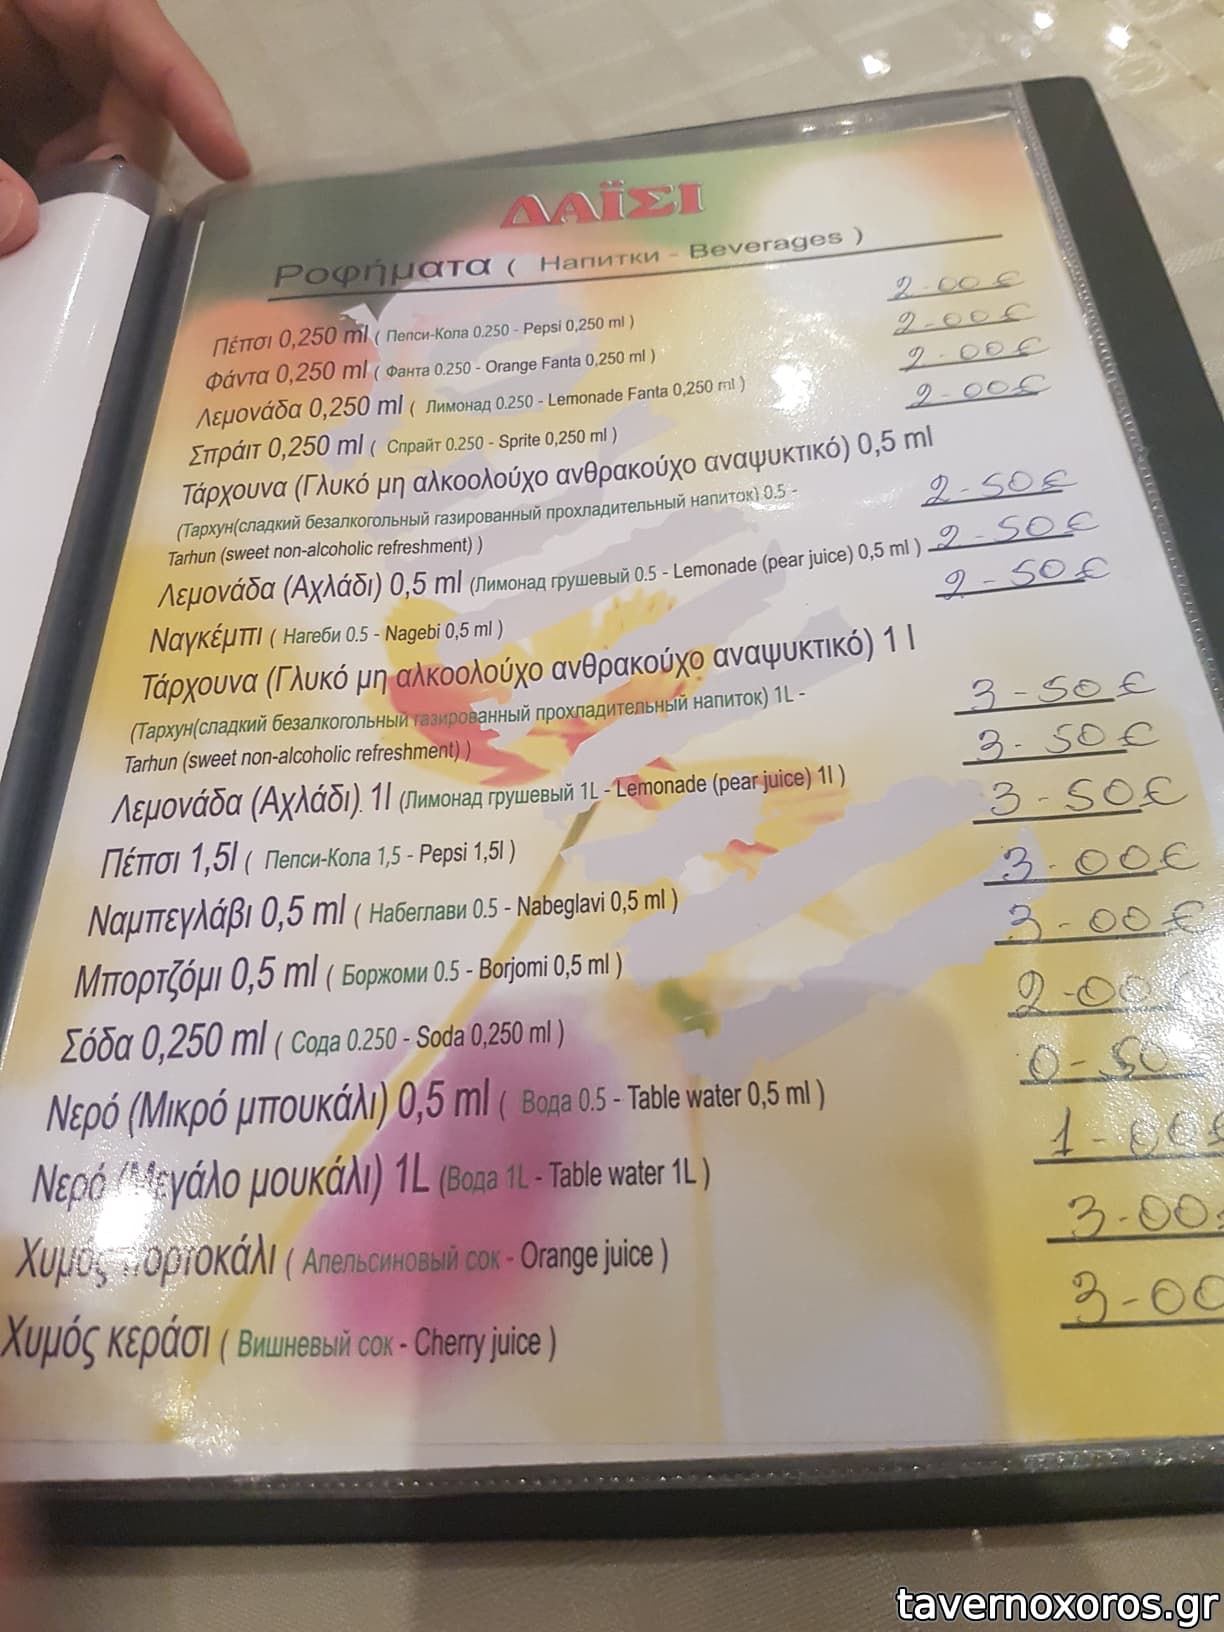 ΔΑΪΣΙ
Ροφήματα ( Напитки - Beverages )
Πέπσι 0,250 ml ( Пепси-Кола 0.250 - Pepsi 0,250 ml ) 2-00€
Φάντα 0,250 ml ( Фанта 0.250 - Orange Fanta 0,250 ml ) 2-00€
Λεμονάδα 0,250 ml ( Лимонад 0.250 - Lemonade Fanta 0,250 ml ) 2-00€
Σπράιτ 0,250 ml ( Спрайт 0.250 - Sprite 0,250 ml ) 2-00€
Τάρχουνα (Γλυκό μη αλκοολούχο ανθρακούχο αναψυκτικό) 0,5 ml
(Тархун(сладкий безалкогольный газированный прохладительный напиток) 0.5 - 2-50€
Tarhun (sweet non-alcoholic refreshment) )
Λεμονάδα (Αχλάδι) 0,5 ml (Лимонад грушевый 0.5 - Lemonade (pear juice) 0,5 ml ) 2-50€
Ναγκέμπι ( Нагеби 0.5 - Nagebi 0,5 ml ) 2-50€
Τάρχουνα (Γλυκό μη αλκοολούχο ανθρακούχο αναψυκτικό) 1 l
(Тархун(сладкий безалкогольный газированный прохладительный напиток) 1L - 3-50€
Tarhun (sweet non-alcoholic refreshment) )
Λεμονάδα (Αχλάδι). 1l (Лимонад грушевый 1L - Lemonade (pear juice) 1l ) 3-50€
Πέπσι 1,5l ( Пепси-Кола 1,5 - Pepsi 1,5l ) 3-50€
Ναμπεγλάβι 0,5 ml ( Набеглави 0.5 - Nabeglavi 0,5 ml ) 3-00€
Μπορτζόμι 0,5 ml ( Боржоми 0.5 - Borjomi 0,5 ml ) 3-00€
Σόδα 0,250 ml ( Сода 0.250 - Soda 0,250 ml ) 2-00€
Νερό (Μικρό μπουκάλι) 0,5 ml ( Вода 0.5 - Table water 0,5 ml ) 0-50
Νερό (Μεγάλο μουκάλι) 1L (Вода 1L - Table water 1L ) 1-00€
Χυμός πορτοκάλι ( Апельсиновый сок - Orange juice ) 3-00
Χυμός κεράσι ( Вишневый сок - Cherry juice ) 3-00
tavernoxoros.gr